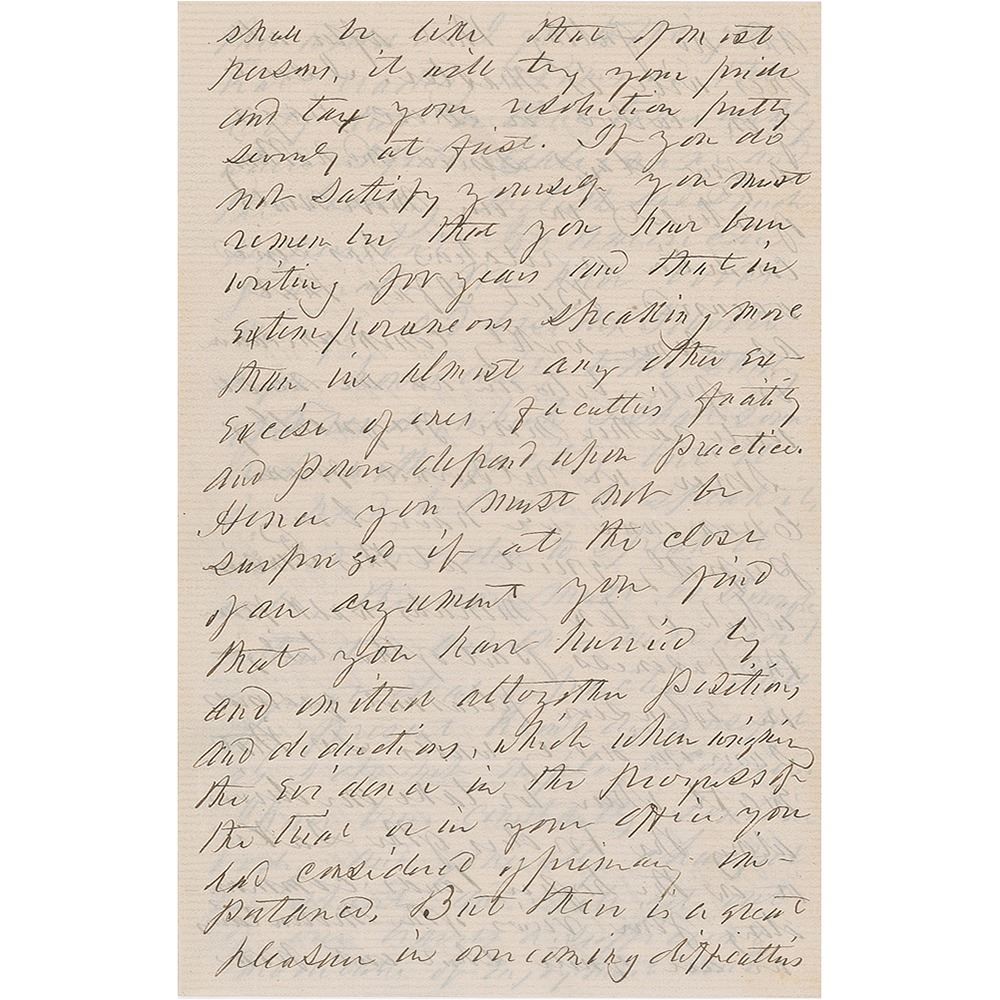 shall be like that of most
persons, it will try your pride
and tax your resolution pretty
severely at first. If you do
not satisfy yourself you must
remember that you have been
writing for years and that in
extemporaneous speaking, more
than in almost any other ex-
ercise of ones faculties facility
and power depend upon practice.
Hence you must not be
surprized if at the close
of an argument you find
that you have hurried by
and omitted altogether positions
and deductions, which when weighing
the evidence in the progress of
the trial or in your office you
had considered of primary im-
portance. But there is a great
pleasure in overcoming difficulties